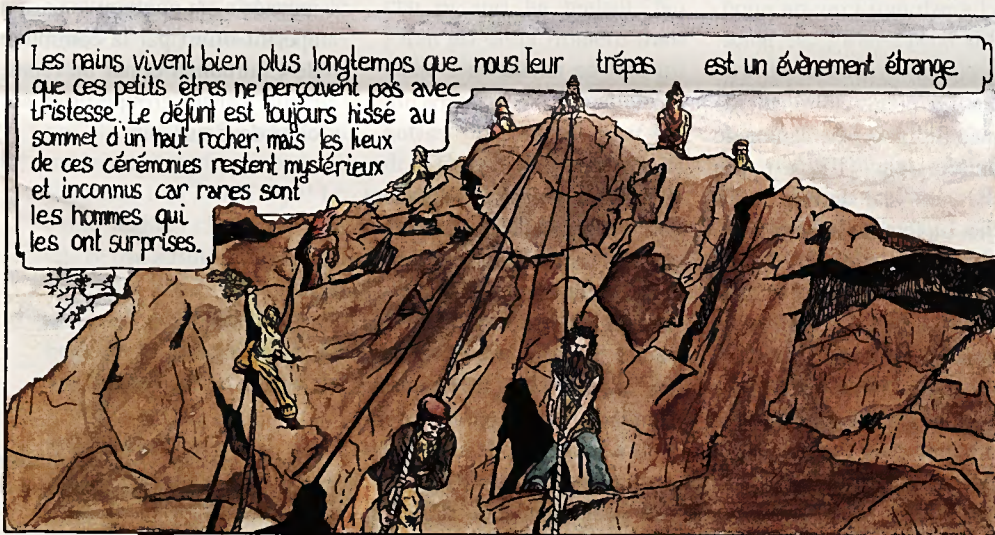 Les nains vivent bien plus longtemps que nous. leur trépas est un évènement étrange
que ces petits êtres ne perçoivent pas avec
tristesse. Le défunt est toujours hissé au
sommet d'un haut rocher, mais les lieux
de ces cérémonies restent mystérieux
et inconnus car rares sont
les hommes qui
les ont surprises.